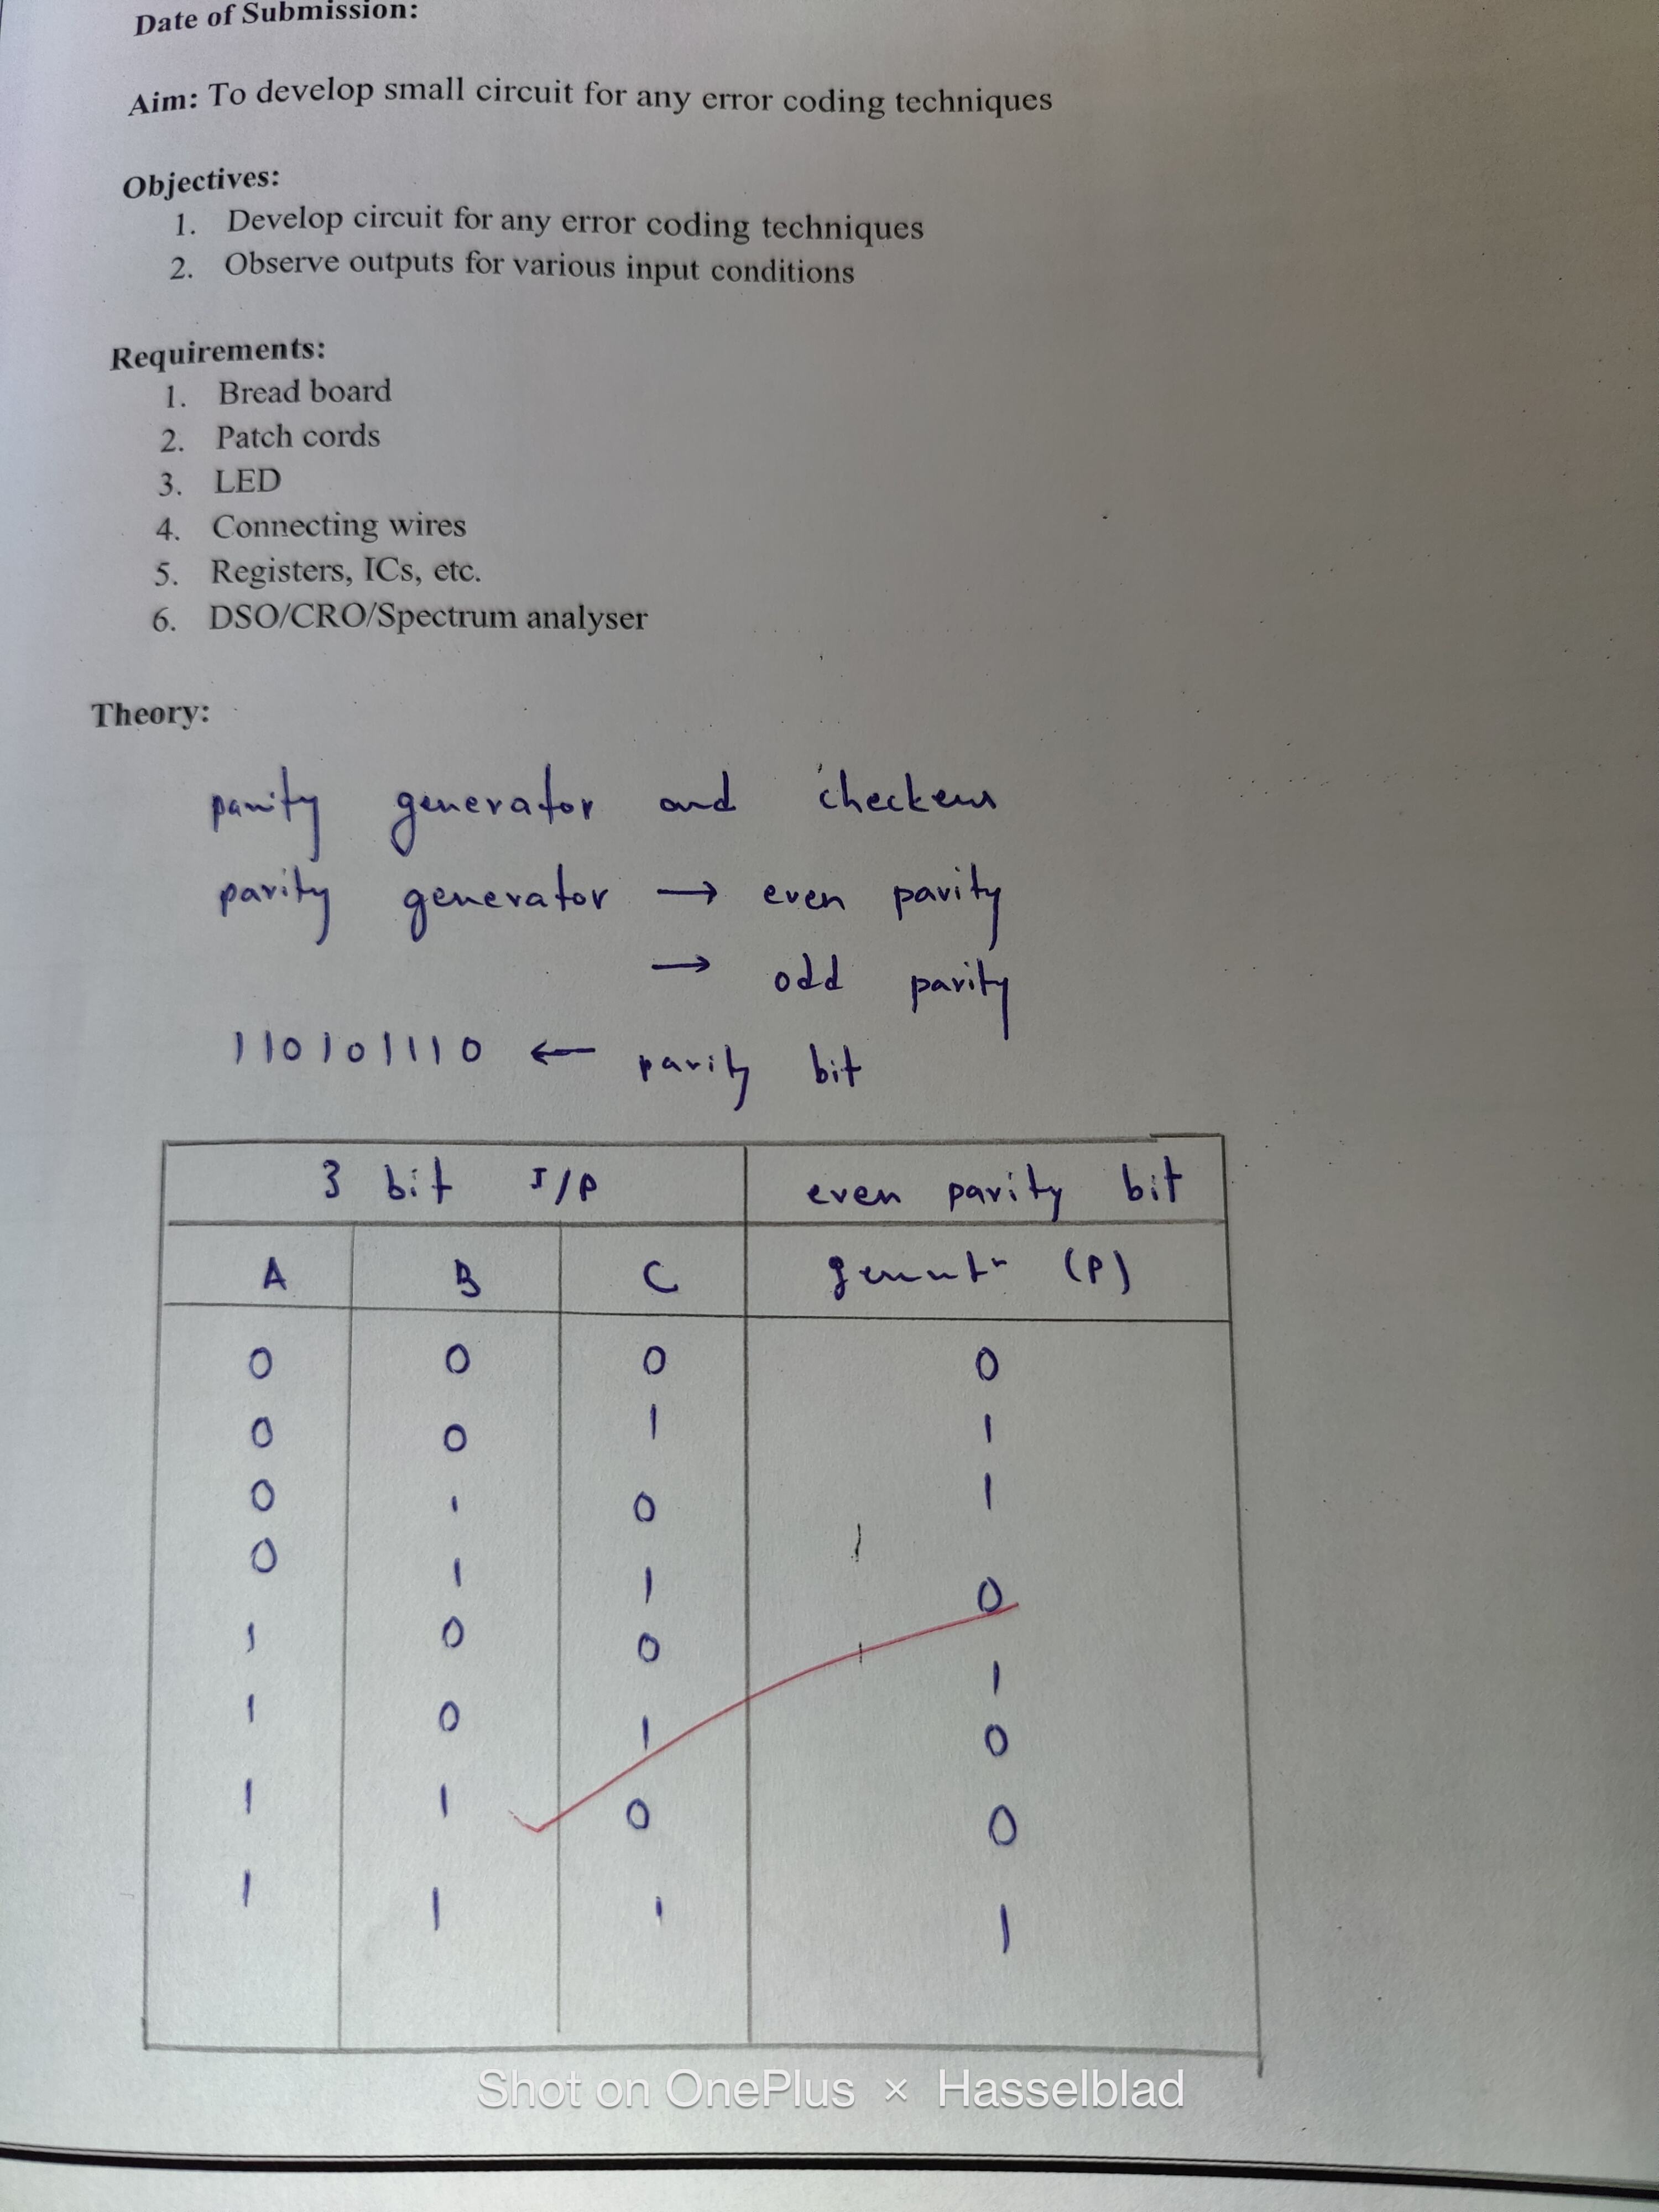 Date of Submission:
Aim: To develop small circuit for any error coding techniques
Objectives:
1. Develop circuit for any error coding techniques
2. Observe outputs for various input conditions
Requirements:
1. Bread board
2. Patch cords
3. LED
4. Connecting wires
5. Registers, ICs, etc.
6. DSO/CRO/Spectrum analyser
Theory:
parity generator and checkers
parity generator → even parity
→ odd parity
110101110 ← parity bit
3 bit I/P even parity bit
A B C (P)
0 0 0 0
0 0 1 1
0 1 0 1
0 1 1 0
1 0 0 1
1 0 1 0
1 1 0 0
1 1 1 1
Shot on OnePlus × Hasselblad